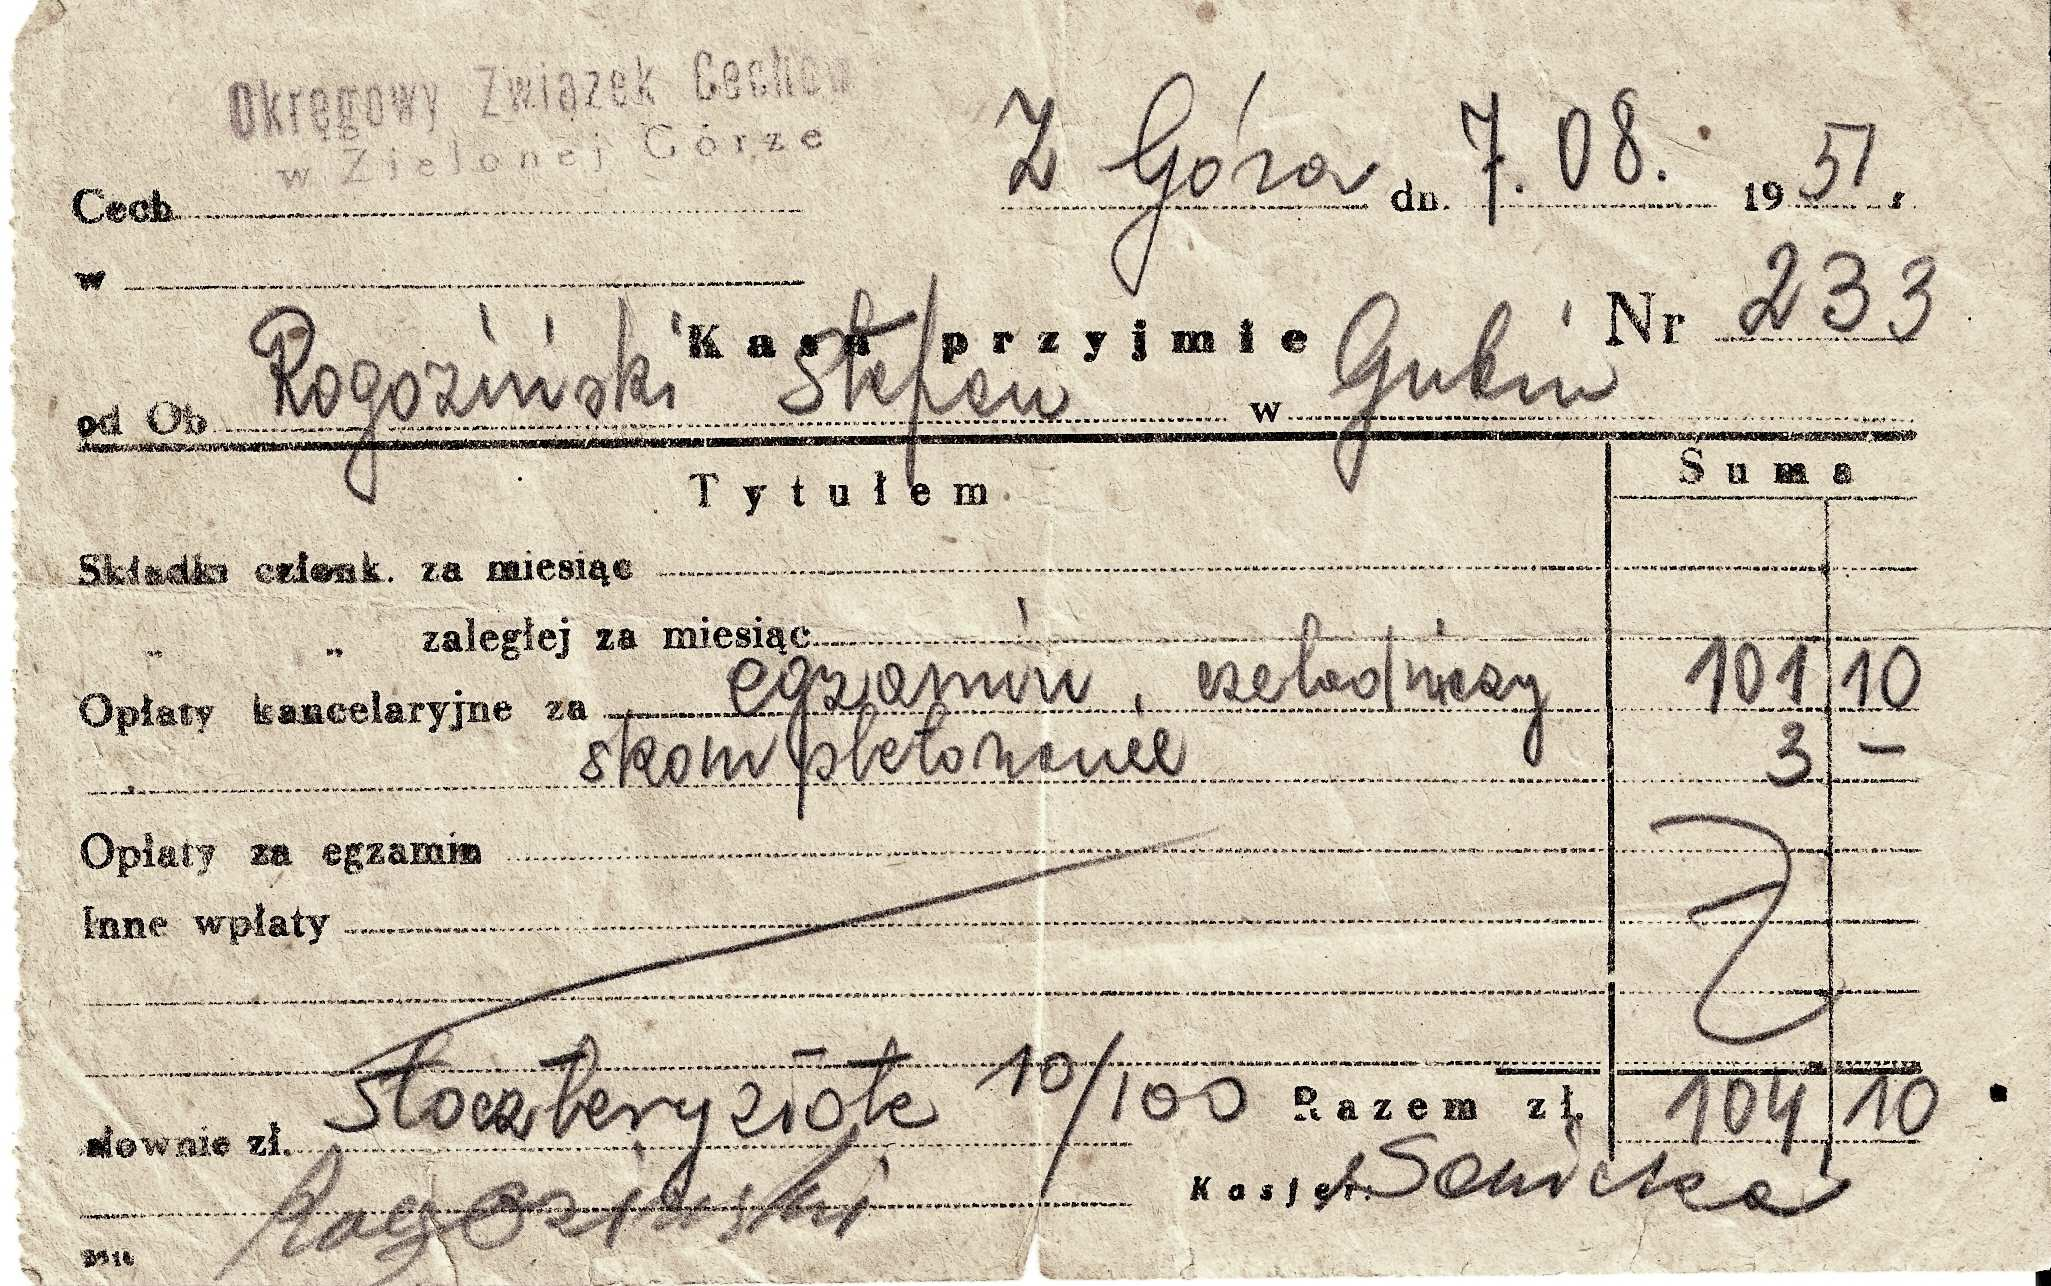 Okręgowy Związek Cechów
w Zielonej Górze
Z Góra dn. 7. 08. 1951 r
Cech
w
Nr 233
Kasa przyjmie
od Ob Rogoziński Stefan w Gubin
Tytułem Suma
Składki członk. za miesiąc
" " zaległej za miesiąc
Opłaty kancelaryjne za egzamin, czeladniczy 101 10
skompletowanie 3 –
Opłaty za egzamin
Inne wpłaty
słownie zł. stoczteryzłote 10/100 Razem zł. 104 10
Rogoziński Kasjer: